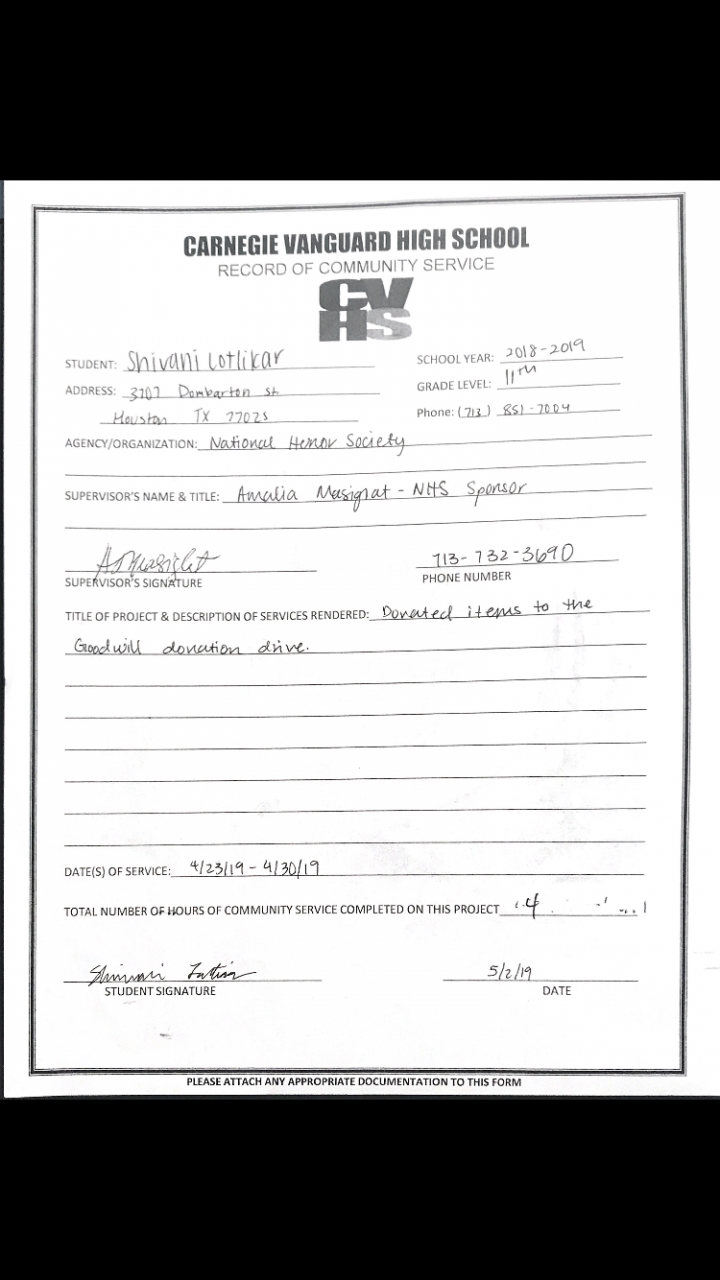 CARNEGIE VANGUARD HIGH SCHOOL
RECORD OF COMMUNITY SERVICE
CV
HS
STUDENT: Shivani Lotlikar SCHOOL YEAR: 2018-2019
ADDRESS: 3707 Dombarton st GRADE LEVEL: 11TH
Houston TX 77025 Phone: (713) 851-7004
AGENCY/ORGANIZATION: National Honor Society
SUPERVISOR'S NAME & TITLE: Amalia Masignat - NHS Sponsor
713-732-3690
SUPERVISOR'S SIGNATURE PHONE NUMBER
TITLE OF PROJECT & DESCRIPTION OF SERVICES RENDERED: Donated items to the
Goodwill donation drive.
DATE(S) OF SERVICE: 4/23/19 - 4/30/19
TOTAL NUMBER OF HOURS OF COMMUNITY SERVICE COMPLETED ON THIS PROJECT 4
Shivani 5/2/19
STUDENT SIGNATURE DATE
PLEASE ATTACH ANY APPROPRIATE DOCUMENTATION TO THIS FORM